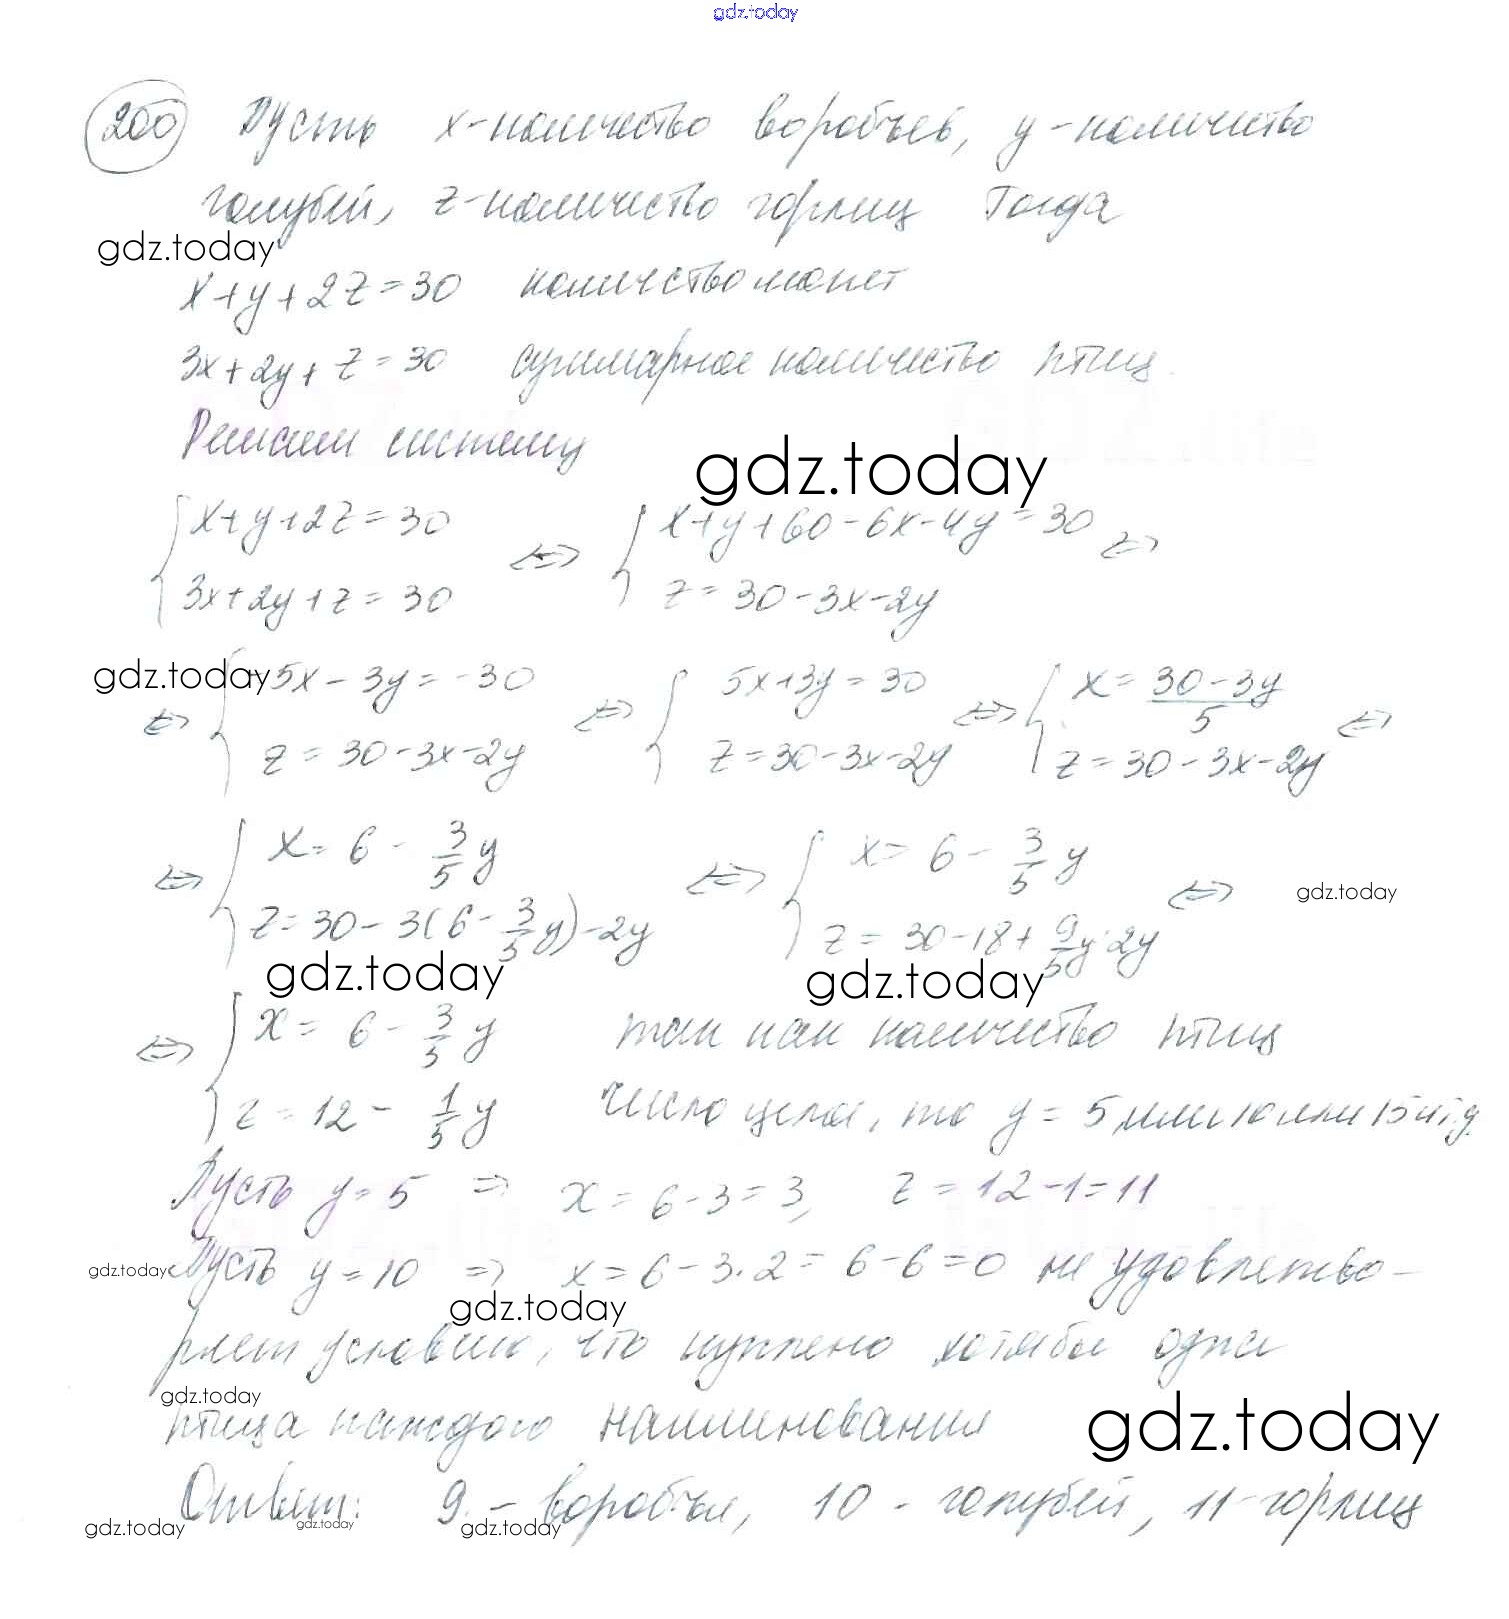 gdz.today
200 Пусть x-количество воробьев, y-количество
голубей, z-количество горлиц Тогда
gdz.today
x+y+2z=30 количество монет
3x+2y+z=30 суммарное количество птиц.
Решаем систему
gdz.today
{x+y+2z=30 <=> {x+y+60-6x-4y=30 <=>
3x+2y+z=30 z=30-3x-2y
gdz.today
<=> {-5x-3y=-30 <=> {5x+3y=30 <=> {x=(30-3y)/5 <=>
z=30-3x-2y z=30-3x-2y z=30-3x-2y
<=> {x=6-3/5y <=> {x=6-3/5y <=> gdz.today
z=30-3(6-3/5y)-2y z=30-18+9/5y-2y
gdz.today gdz.today
<=> {x=6-3/5y так как количество птиц
z=12-1/5y число целое, то y=5 или 10 или 15 и т.д.
Пусть y=5 => x=6-3=3, z=12-1=11
gdz.today Пусть y=10 => x=6-3·2=6-6=0 не удовлетво-
gdz.today
ряет условию, что куплено хотя бы одна
gdz.today
птица каждого наименования
gdz.today
Ответ: 9-воробья, 10-голубей, 11-горлиц
gdz.today gdz.today gdz.today